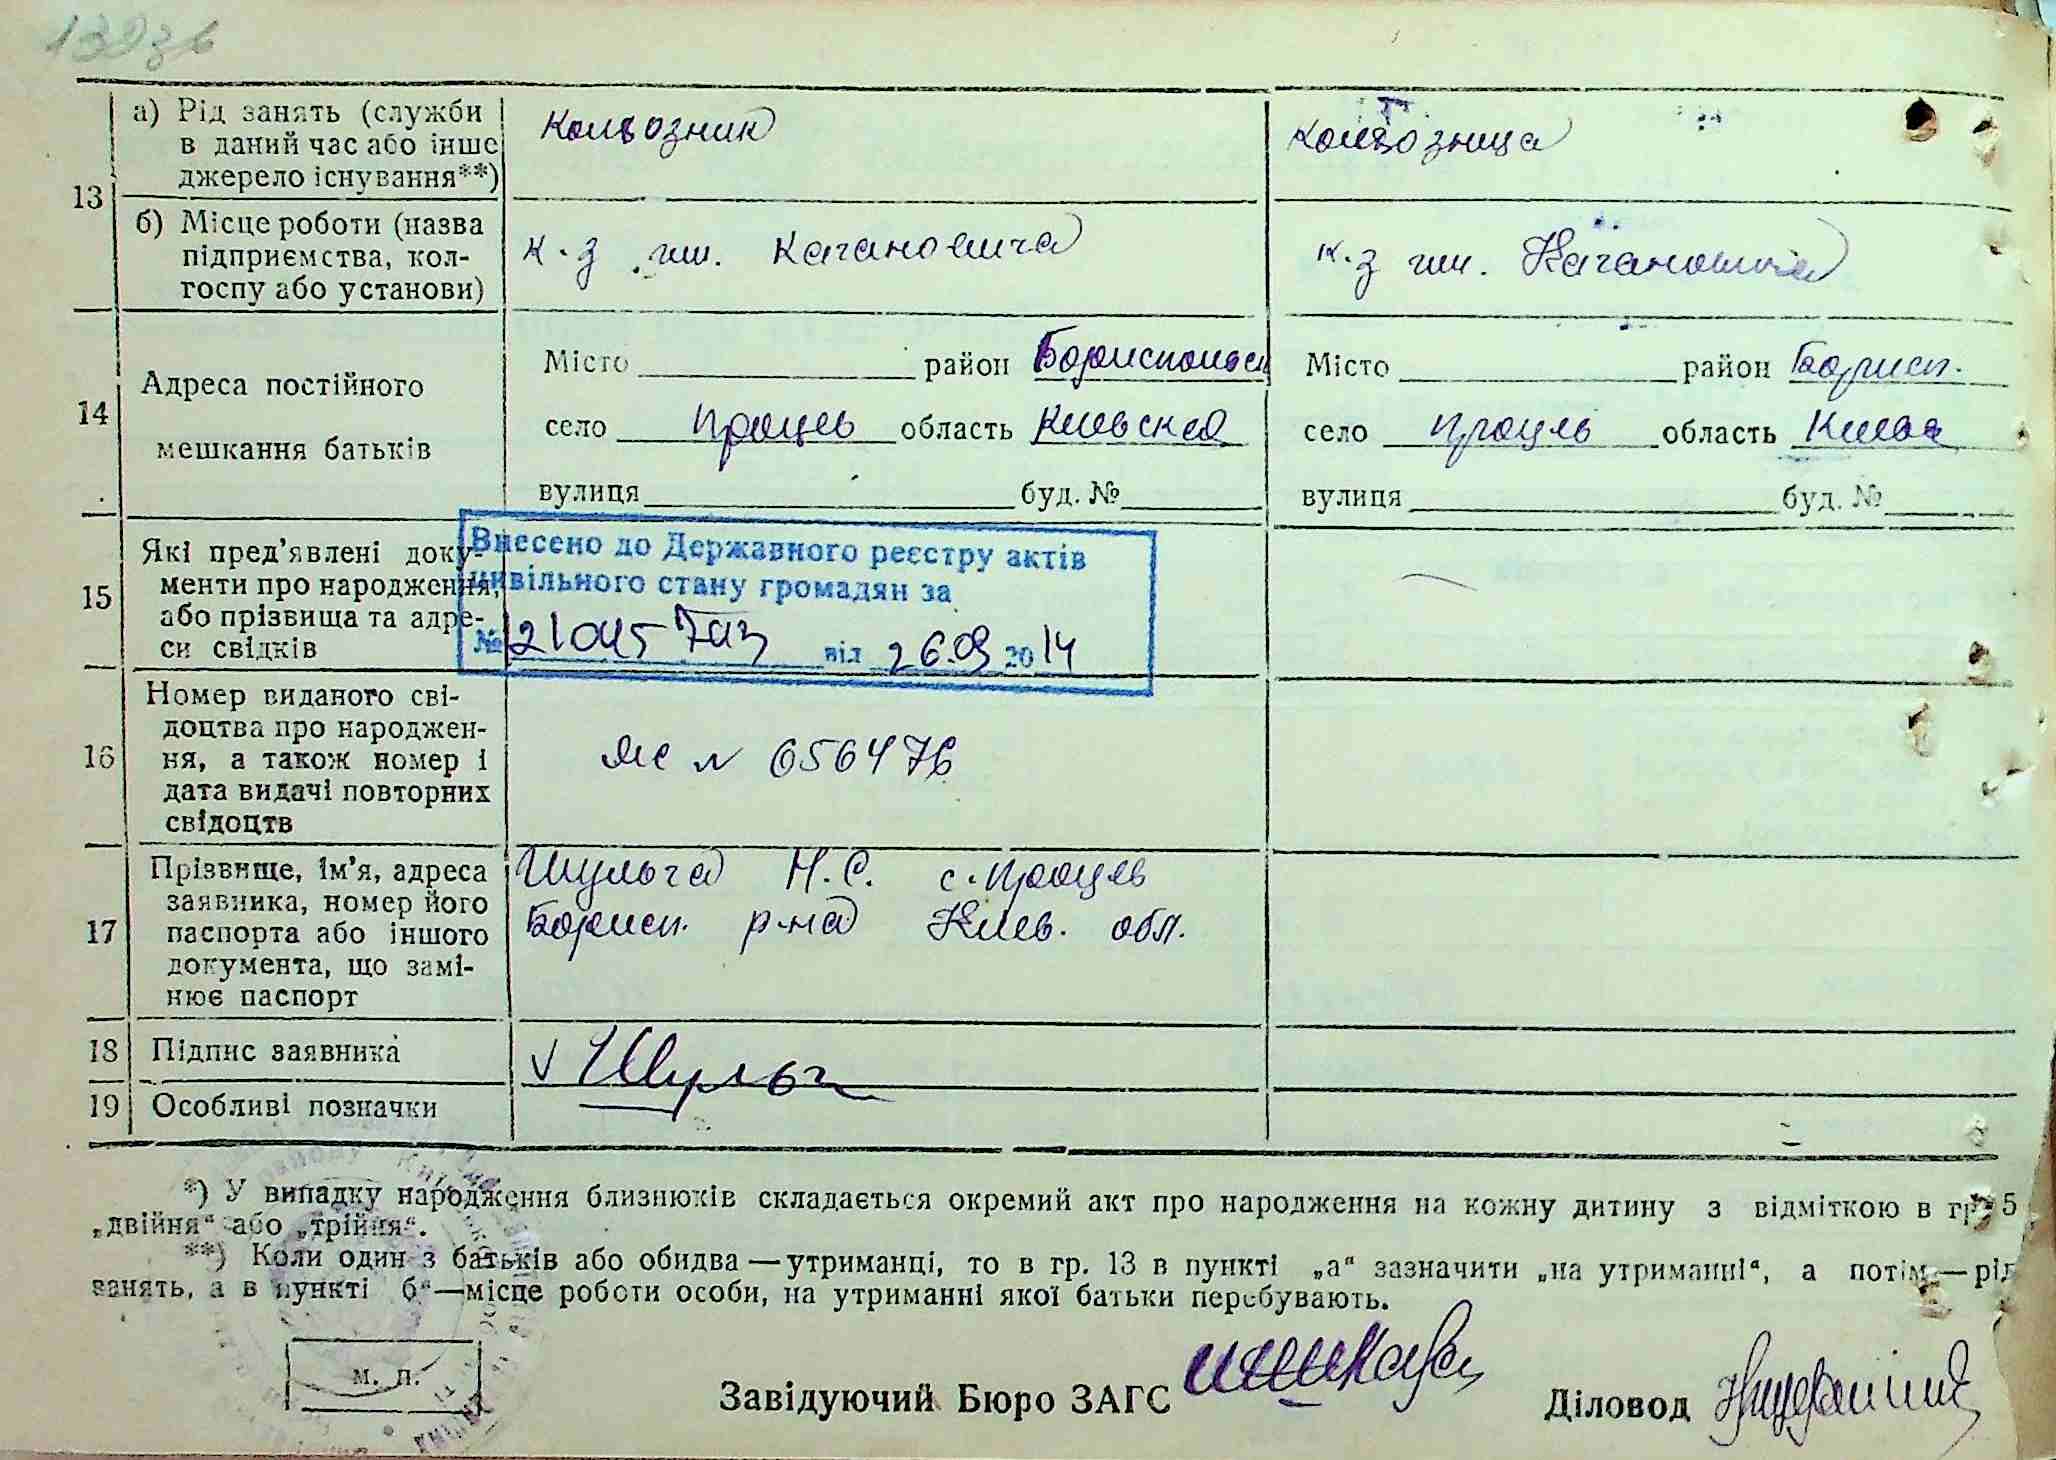 139зв
13
а) Рід занять (служби
в даний час або інше
джерело існування**)
Колгозник
Колгозница
б) Місце роботи (назва
підприємства, кол-
госпу або установи)
к.з им. Кагановича
к.з им. Кагановича
14
Адреса постійного
мешкання батьків
Місто район Бориспольск
село Процев область Киевская
вулиця буд. №
Місто район Борисп.
село Процев область Киевс
вулиця буд. №
15
Які пред'явлені доку-
менти про народження,
або прізвища та адре-
си свідків
Внесено до Державного реєстру актів
цивільного стану громадян за
№ від 26.09 2014
16
Номер виданого сві-
доцтва про народжен-
ня, а також номер і
дата видачі повторних
свідоцтв
ЯС N 656476
17
Прізвище, ім'я, адреса
заявника, номер його
паспорта або іншого
документа, що замі-
нює паспорт
Шульга Н.С. с. Процев
Борисп. р-на Киев. обл.
18 Підпис заявника
V Шульг
19 Особливі позначки
*) У випадку народження близнюків складається окремий акт про народження на кожну дитину з відміткою в гр. 5
„двійня“ або „трійня“.
**) Коли один з батьків або обидва—утриманці, то в гр. 13 в пункті „а“ зазначити „на утриманні“, а потім—рід
занять, а в пункті б“—місце роботи особи, на утриманні якої батьки перебувають.
м. п.
Завідуючий Бюро ЗАГС
Діловод